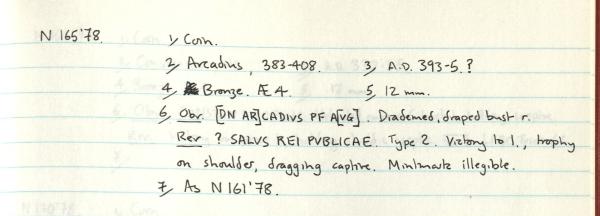 N 165'78. 1/ Coin.
2/ Arcadius, 383-408. 3/ A.D. 393-5.?
4/ Bronze. Æ 4. 5/ 12 mm.
6/ Obv. [DN AR]CADIVS PF A[VG]. Diademed, draped bust r.
Rev. ? SALVS REI PVBLICAE. Type 2. Victory to l., trophy
on shoulder, dragging captive. Mintmark illegible.
7/ As N 161'78.